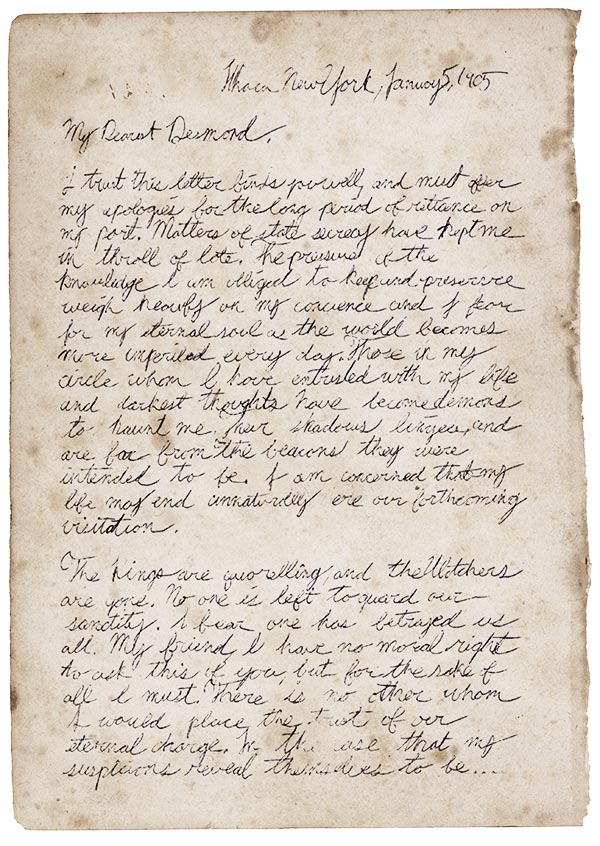 Ithaca New York, January 5, 1905
My Dearest Desmond,
I trust this letter finds you well, and must offer
my apologies for the long period of reticence on
my part. Matters of state secrecy have kept me
in throll of late. The pressure of the
knowledge I am obliged to keep and preserve
weigh heavily on my concience and I fear
for my eternal soul as the world becomes
more imperiled every day. Those in my
circle whom I have entrusted with my life
and darkest thoughts have become demons
to haunt me. Their shadows linger, and
are far from the beacons they were
intended to be. I am concerned that my
life may end unnaturally ere our forthcoming
visitation.
The Kings are quorelling, and the Watchers
are gone. No one is left to guard our
sanctity. I fear one has betrayed us
all. My friend, I have no moral right
to ask this of you, but for the sake of
all I must. There is no other whom
I would place the trust of our
eternal charge. In the case that my
suspicions reveal themselves to be....